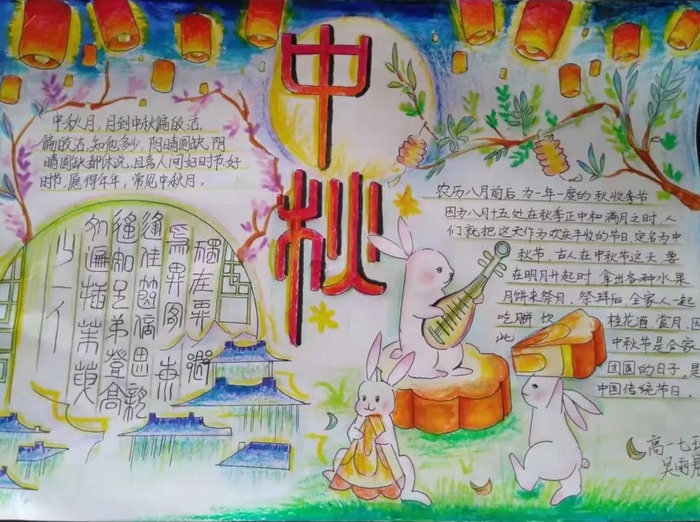 中秋
中秋月，月到中秋偏皎洁，
偏皎洁，知他多少，阴晴圆缺，阴
晴圆缺都休说，且喜人间好时节，好
时节，愿得年年，常见中秋月。
逢佳節倍思親
遙知兄弟登高
遍插茱萸
少一人
农历八月前后为一年一度的秋收季节
因为八月十五处在秋季正中和满月之时，人
们就把这天作为欢庆丰收的节日，定名为中
秋节，古人在中秋节这天，要
在明月升起时，拿出各种水果
月饼来祭月，祭拜后，全家人一起
吃月饼 饮 桂花酒 赏月，因
此 中秋节是合家
团圆的日子，是
中国传统节日.
高一七
吴雨